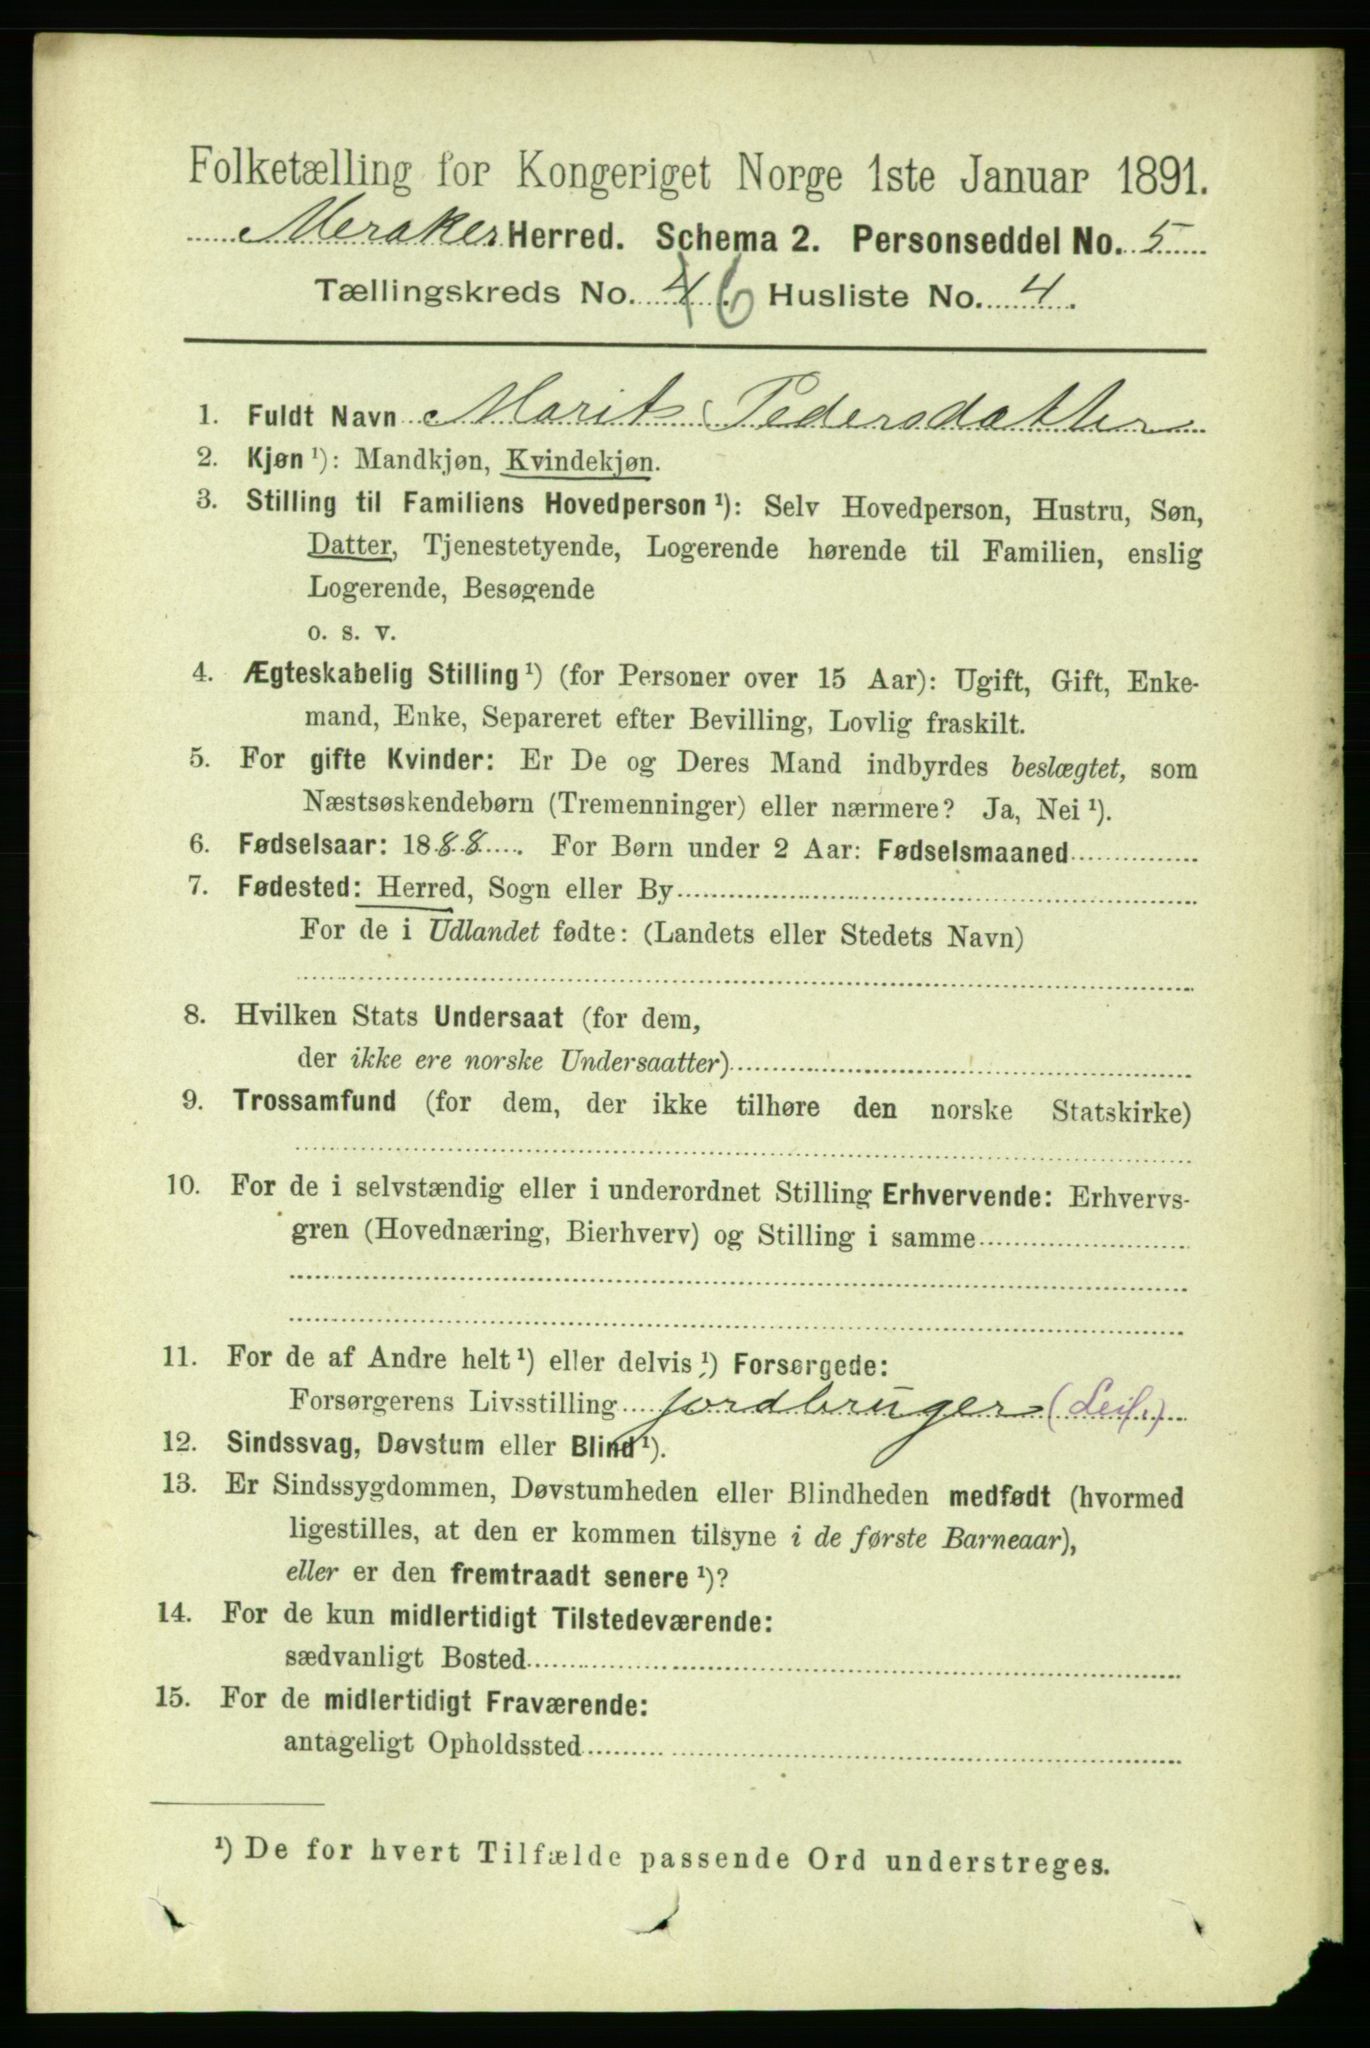 Folketælling for Kongeriget Norge 1ste Januar 1891.
Meraker Herred. Schema 2. Personseddel No. 5
Tællingskreds No. 4 6 Husliste No. 4.
1. Fuldt Navn Marit Pedersdatter
2. Kjøn ¹): Mandkjøn, Kvindekjøn.
3. Stilling til Familiens Hovedperson ¹): Selv Hovedperson, Hustru, Søn,
Datter, Tjenestetyende, Logerende hørende til Familien, enslig
Logerende, Besøgende
o. s. v.
4. Ægteskabelig Stilling ¹) (for Personer over 15 Aar): Ugift, Gift, Enke-
mand, Enke, Separeret efter Bevilling, Lovlig fraskilt.
5. For gifte Kvinder: Er De og Deres Mand indbyrdes beslægtet, som
Næstsøskendebørn (Tremenninger) eller nærmere? Ja, Nei ¹).
6. Fødselsaar: 1888. For Børn under 2 Aar: Fødselsmaaned
7. Fødested: Herred, Sogn eller By
For de i Udlandet fødte: (Landets eller Stedets Navn)
8. Hvilken Stats Undersaat (for dem,
der ikke ere norske Undersaatter)
9. Trossamfund (for dem, der ikke tilhøre den norske Statskirke)
10. For de i selvstændig eller i underordnet Stilling Erhvervende: Erhvervs-
gren (Hovednæring, Bierhverv) og Stilling i samme
11. For de af Andre helt ¹) eller delvis ¹) Forsørgede:
Forsørgerens Livsstilling jordbruger (Leil.)
12. Sindssvag, Døvstum eller Blind ¹).
13. Er Sindssygdommen, Døvstumheden eller Blindheden medfødt (hvormed
ligestilles, at den er kommen tilsyne i de første Barneaar),
eller er den fremtraadt senere ¹)?
14. For de kun midlertidigt Tilstedeværende:
sædvanligt Bosted
15. For de midlertidigt Fraværende:
antageligt Opholdssted
¹) De for hvert Tilfælde passende Ord understreges.